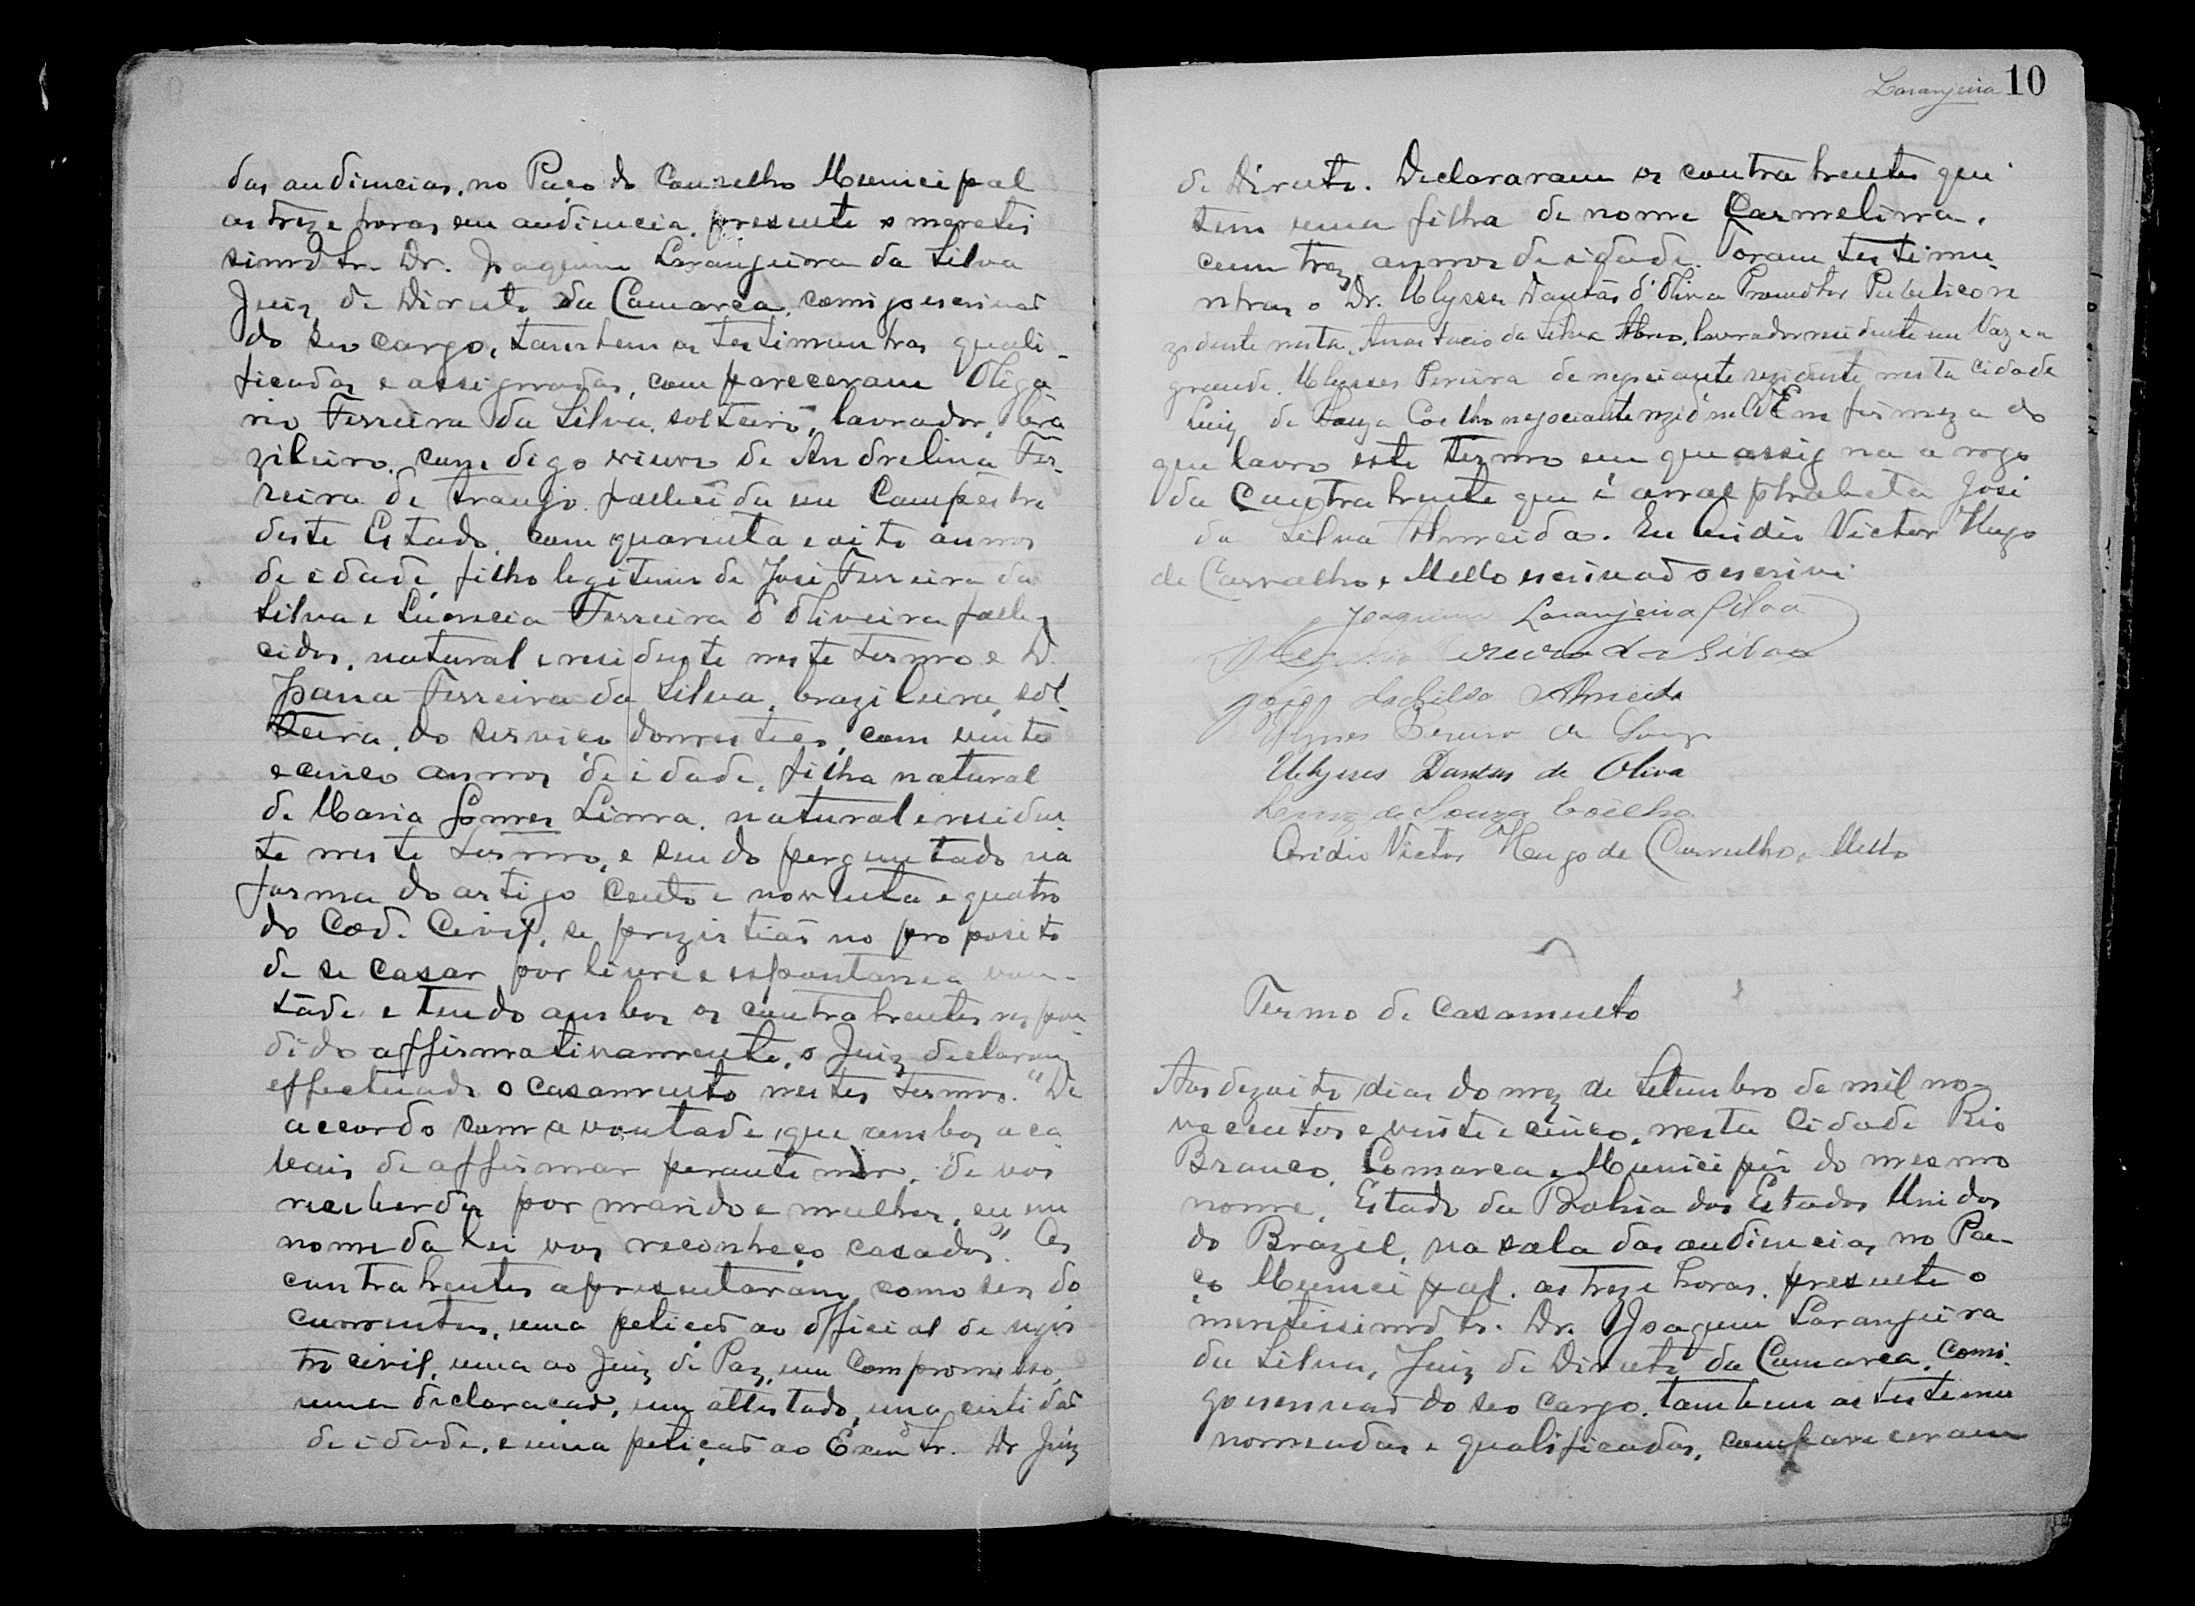 das audiencias, no Paço do Conselho Municipal
as treze horas em audiencia, presente o meretis
simo Sr. Dr. Joaquim Laranjeira da Silva
Juiz de Direito da Comarca, comigo escrivaõ
do seo cargo, tambem as testimunhas quali-
ficadas e assignadas, compareceram Oliga
rio Ferreira da Silva, solteiro, lavrador, bra
zileiro, com digo viuvo de Andrelina Fer-
reira de Araujo, fallecida em Campestre
deste Estado, com quarenta e oito annos
de edade, filho legitimo de José Ferreira da
Silva e Ferreira d'Oliveira falle-
cidos, natural e residente neste termo e D.
Joana Ferreira da Silva, brazileira, sol-
teira, do serviço domestico, com vinte
e cinco annos de idade, filha natural
de Maria Gomes Lima, natural e residen
te neste termo, e sendo perguntado na
forma do artigo cento e noventa e quatro
do Cod. Civil, se prezistiaõ no proposito
de se casar por livre e espontanea von-
tade e tendo ambos os contrahentes respon-
dido affirmativamente, o Juiz declarou
effectuado o casamento nestes termos. "De
accordo com a vontade, que ambos aca
bais de affirmar perante mim, de vos
receberdes por marido e mulher, eu em
nome da Lei vos reconheço casados". Os
contrahentes apresentaram como sendo
cumentos, uma petiçaõ ao official de regis
tro civil, uma ao Juiz de Paz, um compromisso,
uma declaraçaõ, um attestado, uma certidaõ
de idade, e uma petiçaõ ao Exmo Sr. Dr Juiz
Laranjeira 10
de Direito. Declararam os contrahentes que
tem uma filha de nome Carmelina,
com trez annos de idade. Foram testimu-
nhas o Dr. Ulysses Dantas d'Oliva Promotor Publico re
zidente nesta, Anastacio da Silva Abreo, lavrador residente em Vazea
grande, Ulysses Pereira de negociante rezidente nesta cidade
Luiz de Souza Coelho negociante Em firmeza do
que lavro este termo em que assigna a rogo
da Contrahente que é analphabeta José
da Silva Almeida. Eu Ovidio Victor Hugo
de Carvalho e Mello escrivaõ o escrivi
Joaquim Laranjeira Silva
Ferreira da Silva
José da Silva Almeida
Ulysses Pereira de Souza
Ulysses Dantas de Oliva
Luiz de Souza Coelho
Ovidio Victor Hugo de Carvalho e Mello
Termo de Casamento
Aos dezoito dias do mez de Setembro de mil no-
vecentos e vinte e cinco, nesta Cidade Rio
Branco, Comarca e Municipio do mesmo
nome, Estado da Bahia dos Estados Unidos
do Brazil, na sala das audiencias, no Pa-
ço Municipal, as treze horas, presente o
meretissimo Sr. Dr. Joaquim Laranjeira
da Silva, Juiz de Direito da Comarca, comi-
go escrivaõ do seo cargo, tambem as testimu
nomeadas e qualificadas, compareceram